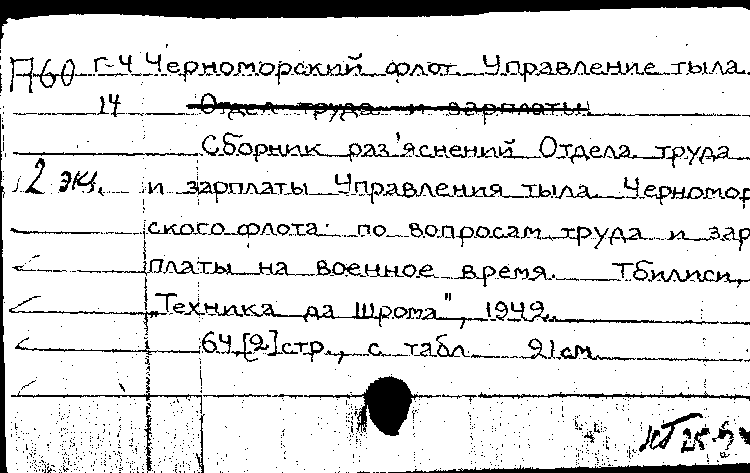 П60 Г-4 Черноморский флот. Управление тыла.
14 Отдел труда и зарплаты.
Сборник раз'яснений Отдела труда
2 экз. и зарплаты Управления тыла Черномор
ского флота по вопросам труда и зар
платы на военное время. Тбилиси,
„Техника да Шрома", 1942.
64,[2]стр., с табл. 21см